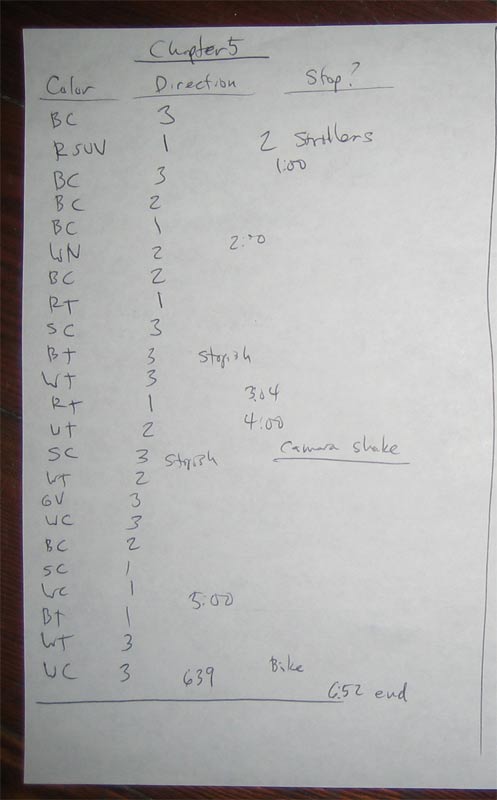 Chapter 5
Color Direction Stop?
BC 3
RSUV 1 2 Strollers
BC 3 1:00
BC 2
BC 1
WN 2 2:20
BC 2
RT 1
SC 3
BT 3 Stopish
WT 3
RT 1 3:04
WT 2 4:00
SC 3 Stopish Camara shake
WT 2
GV 3
WC 3
BC 2
SC 1
WC 1
BT 1 5:00
WT 3
WC 3 639 Bike
6:52 end